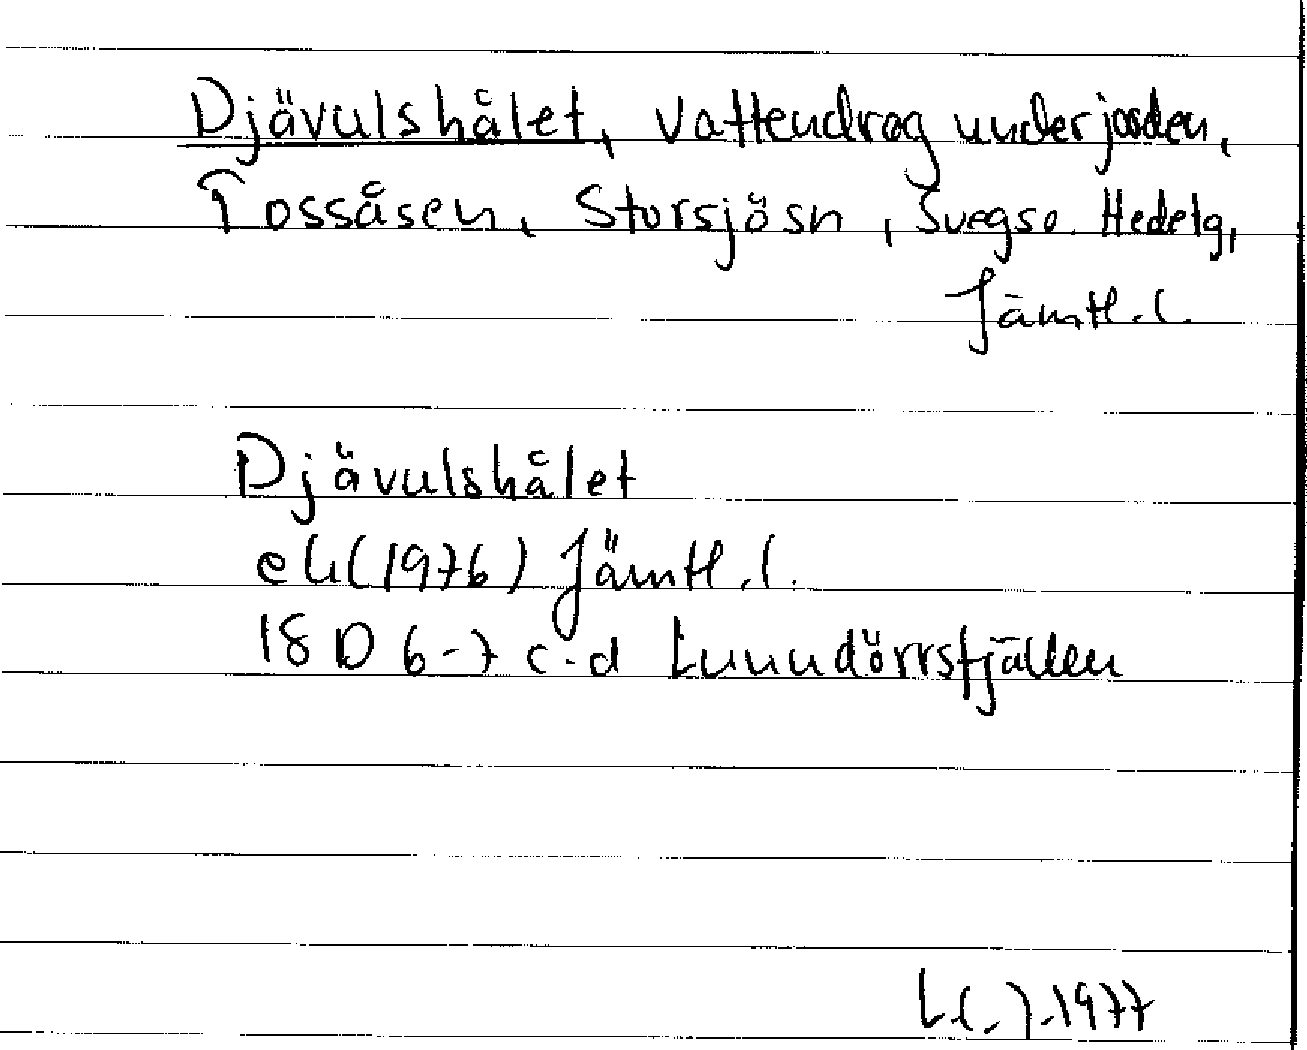 Djävulshålet, vattendrag under jorden,
Tossåsen, Storsjö sn, Svegs o. Hede tg,
Jämtl. l.
Djävulshålet
ek (1976) Jämtl. l.
18 D 6-7 c-d Lunndörrsfjällen
L.(-).1977